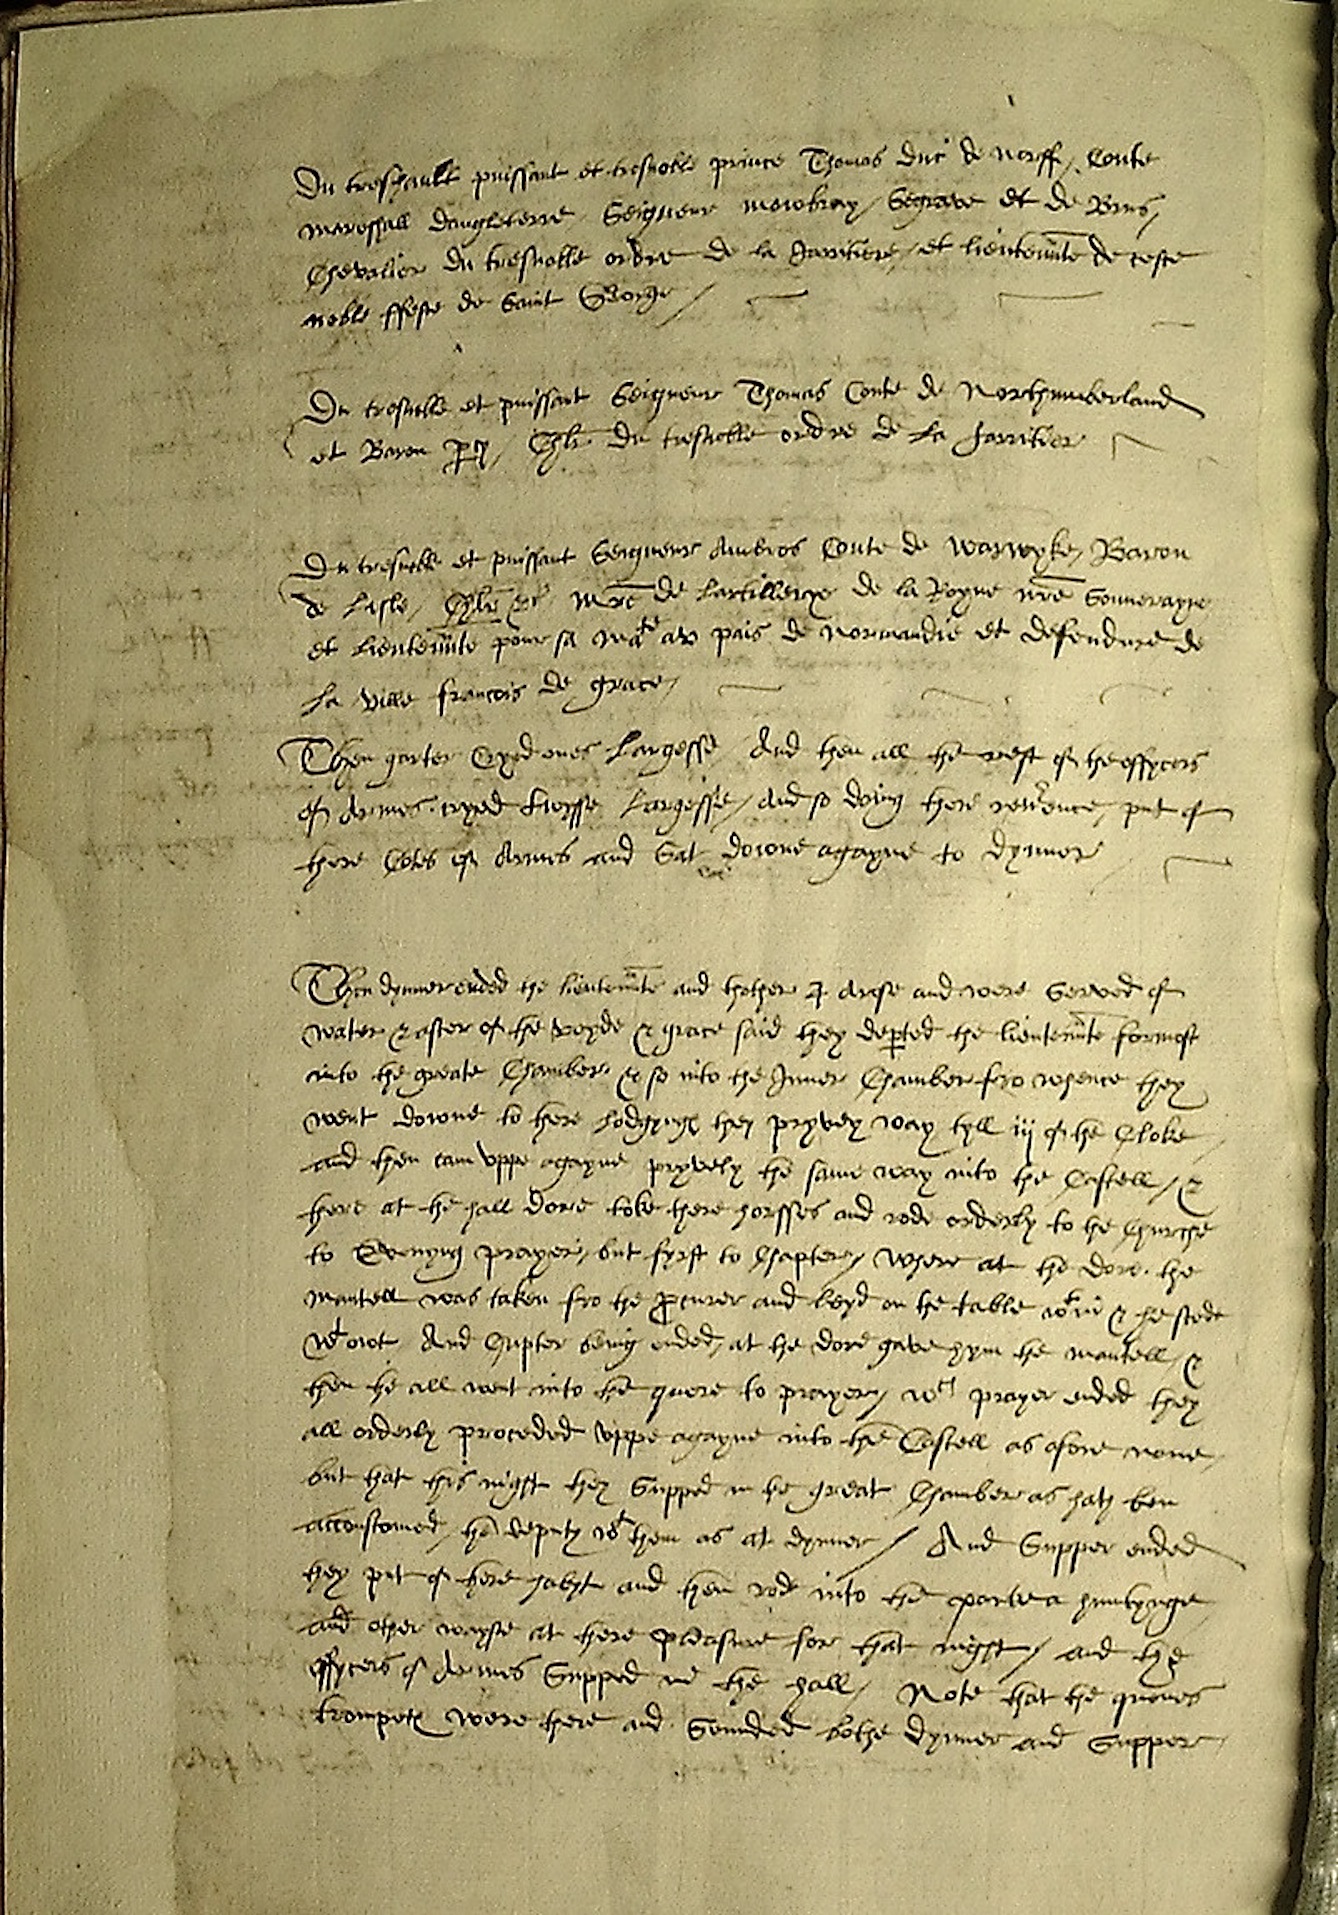 Du treshault puissant et tresnoble prince Thomas duc de Norff, Conte
Maresshall dangleterre, Seigneur Mowbray, Segrave et de Brus,
Chevalier du tresnoble ordre de la Jarritiere, et lieutennte de ceste
noble ffeste de Saint George /
Du tresnoble et puissant Seigneur Thomas Conte de Northumberland
et Baron Percy, Chlr du tresnoble ordre de la Jarritier
Du tresnoble et puissant Seigneur Ambros Conte de Warwyke, Baron
de Lisle, Chlr &c, Mre de Lartillerye de la Royne nre Souverayne
et lieutennte pour sa Mate au pais de Normandie et defendure de
la ville francois de grace,
Then garter Cryed ones Largesse, And then all the rest of the offycers
of Armes cryed Largesse, And so doing there reverence, put of
there Cotes of Armes and Sat downe agayne to dynner
Then dynner ended the lieutennte and thother arose and were Served of
water & after of the voyde & grace said they depted the lieutennte formost
into the greate Chamber, & so into the Inner Chamber fro whence they
went downe to there lodgyngs they pryvey way tyll iij of the Cloke
and then cam uppe agayne pryvely the same way into the Castell, &
there at the hall dore toke there horsses and rode orderly to the Churche
to Evenyng prayer, but fyrst to Chapter, where at the dore the
mantell was taken fro the procurer and leyd on the table wt in & he stode
wt owt And Chapter being ended, at the dore gave hym the mantell, &
then the all went into the quere to prayer, wch prayer ended they
all orderly proceded uppe agayne into the Castell as afore none,
but that this night they Supped in the great Chamber as hath ben
accustomed, the deputy wt them as at dynner / And Supper ended
they put of there habyt and then rode into the parke a huntynge
and other wayse at there pleasure for that night, and the
offycers of Armes Supped in the hall, Note that the quenes
trompets were there and Sounded bothe dynner and Supper,